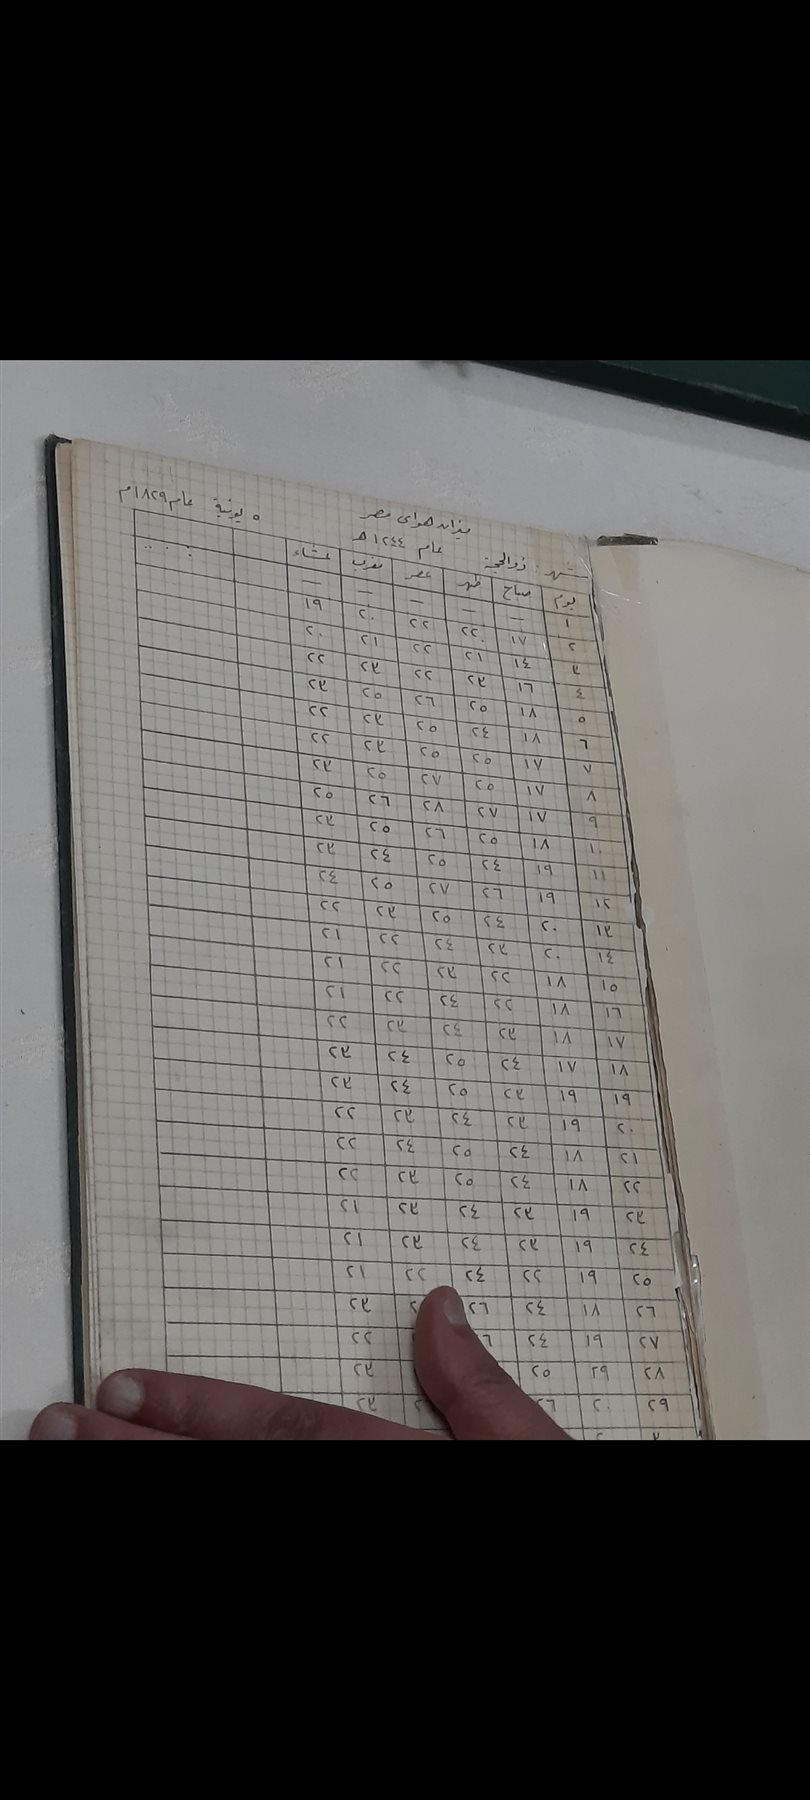 ميزان هواى مصر
شهر: ذوالحجة عام ١٢٤٤هـ ٥ يونية عام ١٨٢٩م
يوم صباح ظهر عصر مغرب عشاء
١ — — — — —
٢ ١٨ ٢٢ ٢٢ ٢٠ ١٩
٣ ١٤ ٢١ ٢٢ ٢١ ٢٠
٤ ١٦ ٢٣ ٢٢ ٢٣ ٢٢
٥ ١٨ ٢٥ ٢٦ ٢٥ ٢٣
٦ ١٨ ٢٤ ٢٥ ٢٣ ٢٢
٧ ١٨ ٢٥ ٢٥ ٢٣ ٢٢
٨ ١٨ ٢٥ ٢٧ ٢٥ ٢٣
٩ ١٨ ٢٧ ٢٨ ٢٦ ٢٥
١٠ ١٨ ٢٥ ٢٦ ٢٥ ٢٣
١١ ١٩ ٢٤ ٢٥ ٢٤ ٢٣
١٢ ١٩ ٢٦ ٢٧ ٢٥ ٢٤
١٣ ٢٠ ٢٤ ٢٥ ٢٣ ٢٢
١٤ ٢٠ ٢٣ ٢٤ ٢٢ ٢١
١٥ ١٨ ٢٢ ٢٣ ٢٢ ٢١
١٦ ١٨ ٢٢ ٢٤ ٢٢ ٢١
١٧ ١٨ ٢٣ ٢٤ ٢٣ ٢٢
١٨ ١٨ ٢٤ ٢٥ ٢٤ ٢٣
١٩ ١٩ ٢٣ ٢٥ ٢٤ ٢٣
٢٠ ١٩ ٢٣ ٢٤ ٢٣ ٢٢
٢١ ١٨ ٢٤ ٢٥ ٢٤ ٢٢
٢٢ ١٨ ٢٤ ٢٥ ٢٣ ٢٢
٢٣ ١٩ ٢٣ ٢٤ ٢٣ ٢١
٢٤ ١٩ ٢٣ ٢٤ ٢٣ ٢١
٢٥ ١٩ ٢٢ ٢٤ ٢٢ ٢١
٢٦ ١٨ ٢٤ ٢٦ ٢٣
٢٧ ١٩ ٢٤ ٢٢
٢٨ ٢٥ ٢٣
٢٩ ٢٠ ٢٦ ٢٣